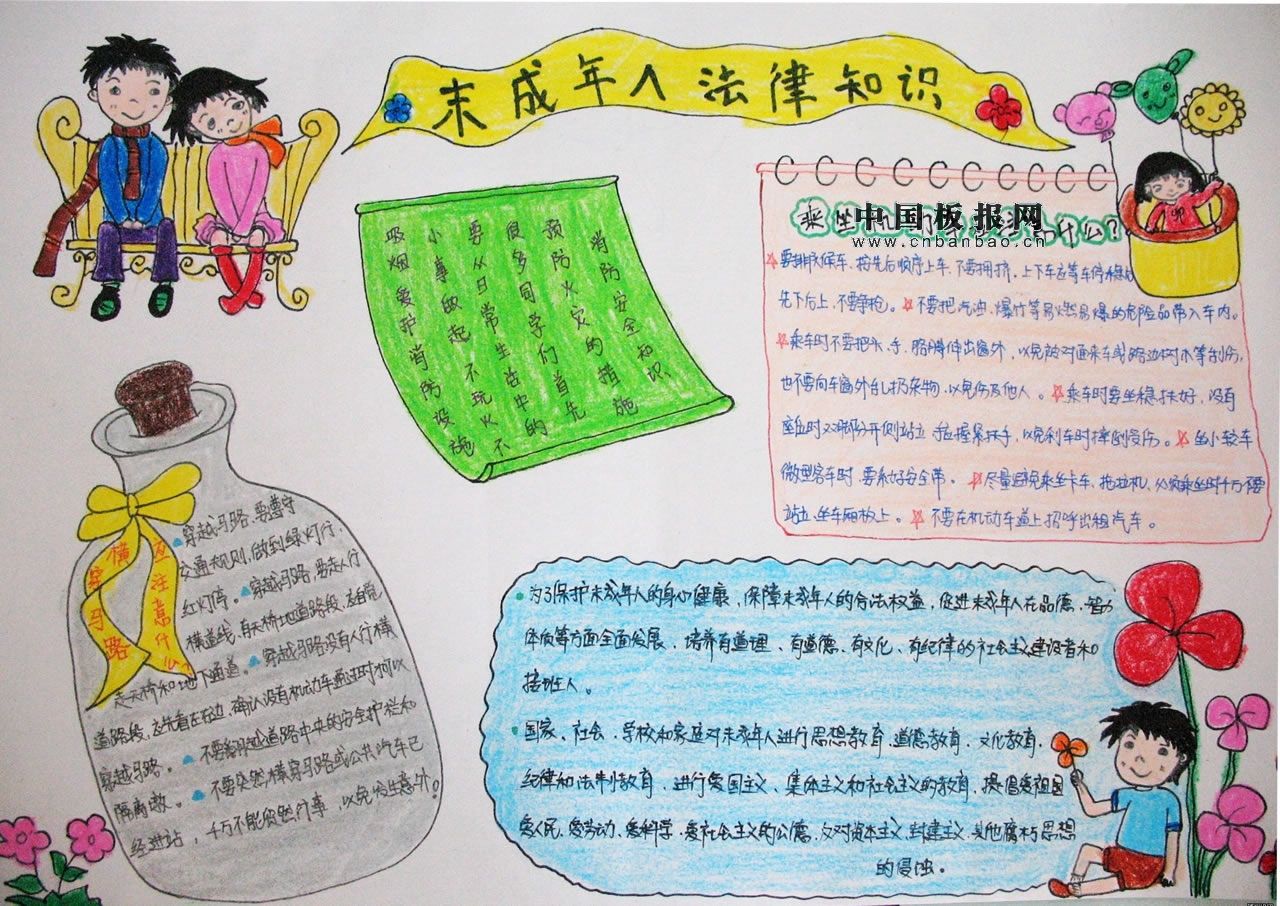 末成年人法律知识
消防安全知识
预防火灾的措施
很多同学们首先
要从日常生活中的
小事做起 不玩火不
吸烟爱护消防设施
中国板报网
www.cnbanbao.cn
乘坐机
什么?
要排队候车、按先后顺序上车、不要拥挤、上下车应等车停稳
先下后上、不要争抢。不要把汽油、爆竹等易燃易爆的危险品带入车内。
乘车时不要把头、手、胳膊伸出窗外，以免被对面来车或路边树木等刮伤，
也不要向车窗外乱扔杂物，以免伤及他人。乘车时要坐稳扶好，没有
座位时双脚分开侧站立 手应握紧扶手，以免刹车时摔倒受伤。坐小轿车
微型客车时、要系好安全带。尽量避免乘坐卡车、拖拉机、必须乘坐时千万不要
站立、坐车厢板上。不要在机动车道上招呼出租汽车。
横穿马路
应注意什么?
穿越马路，要遵守
交通规则，做到绿灯行，
红灯停。穿越马路，要走人行
横道线，有天桥地道路段，应自觉
走天桥和地下通道。穿越马路没有人行横
道路段，应先看左右边，确认没有机动车通过时才可以
穿越马路。不要翻越道路中央的安全护栏和
隔离墩。不要突然横穿马路或公共汽车已
经进站，千万不能贸然行事，以免发生意外!
为了保护未成年人的身心健康、保障未成年人的合法权益，促进未成年人在品德、智力
体质等方面全面发展、培养有道理、有道德、有文化、有纪律的社会主义建设者和
接班人。
国家、社会、学校和家庭对未成年人进行思想教育、道德教育、文化教育、
纪律和法制教育，进行爱国主义、集体主义和社会主义的教育，提倡爱祖国
爱人民、爱劳动、爱科学、爱社会主义的公德，反对资本主义、封建主义、其他腐朽思想
的侵蚀。